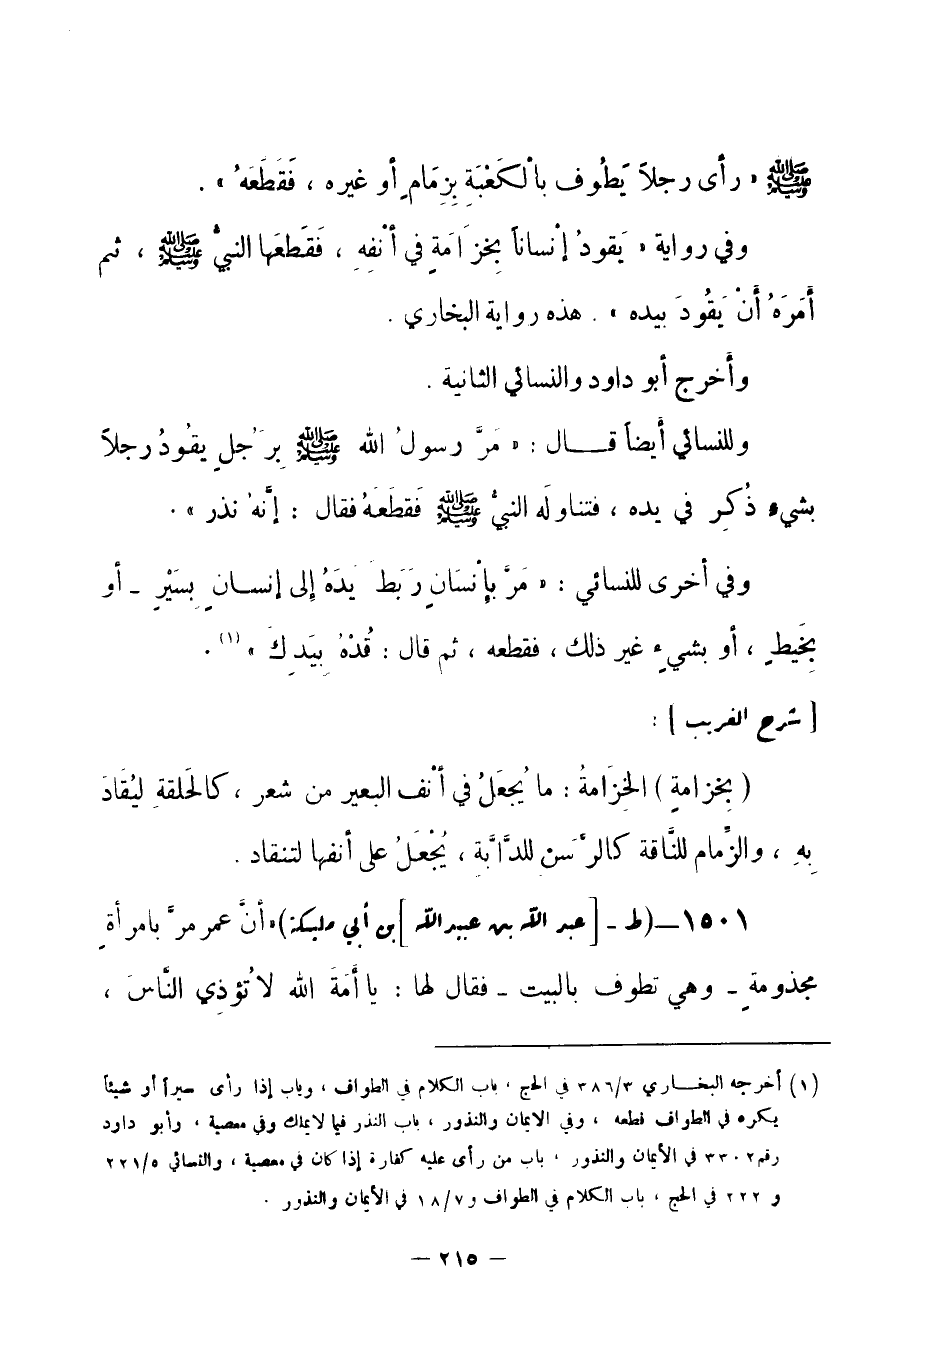 ﷺ « رأى رجلاً يَطُوف بالْكَعْبَةِ بِزِمَامٍ أو غيره ، فَقَطَعَهُ » .
وفي رواية « يَقودُ إنْساناً بِخِزَامَةٍ في أنْفِهِ ، فَقَطعَها النبيُّ ﷺ ، ثم
أَمَرَهُ أَنْ يَقُودَ بيده » . هذه رواية البخاري .
وأخرج أبو داود والنسائي الثانية .
وللنسائي أيضاً قـــال : « مَرَّ رسولُ الله ﷺ بِرَجُلٍ يقُودُ رجلاً
بشيء ذُكِر في يده ، فتناوله النبيُّ ﷺ فَقَطَعَهُ فقال : إنَّهُ نذر » .
وفي أخرى للنسائي : « مَرَّ بإنْسَانٍ رَبَطَ يَدَهُ إلى إنســانٍ بِسَيْرٍ ـ أو
بِخَيطٍ ، أو بشيءٍ غير ذلك ، فقطعه ، ثم قال : قُدْهُ بِيَدِكَ » (١) .
[ شرح الغريب ] :
( بِخِزامةٍ ) الخِزَامةُ : ما يُجعَلُ في أنْف البعير من شعر ، كالحَلقةِ ليُقَادَ
بِهِ ، والزِّمام للنَّاقة كالرَّسَن للدَّابَّةِ ، يُجْعَلُ على أنفها لتنقاد .
١٥٠١ ـ ( ط ـ [ عبد الله بن عبيد الله ] بن أبي مليكة ) « أنَّ عمر مرَّ بامرأةٍ
مجذومةٍ ـ وهي تطوف بالبيت ـ فقال لها : يا أَمَةَ الله لا تُؤذِي النَّاسَ ،
(١) أخرجه البخـاري ٣٨٦/٣ في الحج ، باب الكلام في الطواف ، وباب إذا رأى سيراً أو شيئاً
يكره في الطواف قطعه ، وفي الايمان والنذور ، باب النذر فيما لايملك وفي معصية ، وأبو داود
رقم ٣٣٠٢ في الأيمان والنذور ، باب من رأى عليه كفارة إذا كان في معصية ، والنسائي ٢٢١/٥
و ٢٢٢ في الحج ، باب الكلام في الطواف و ١٨/٧ في الأيمان والنذور .
— ٢١٥ —